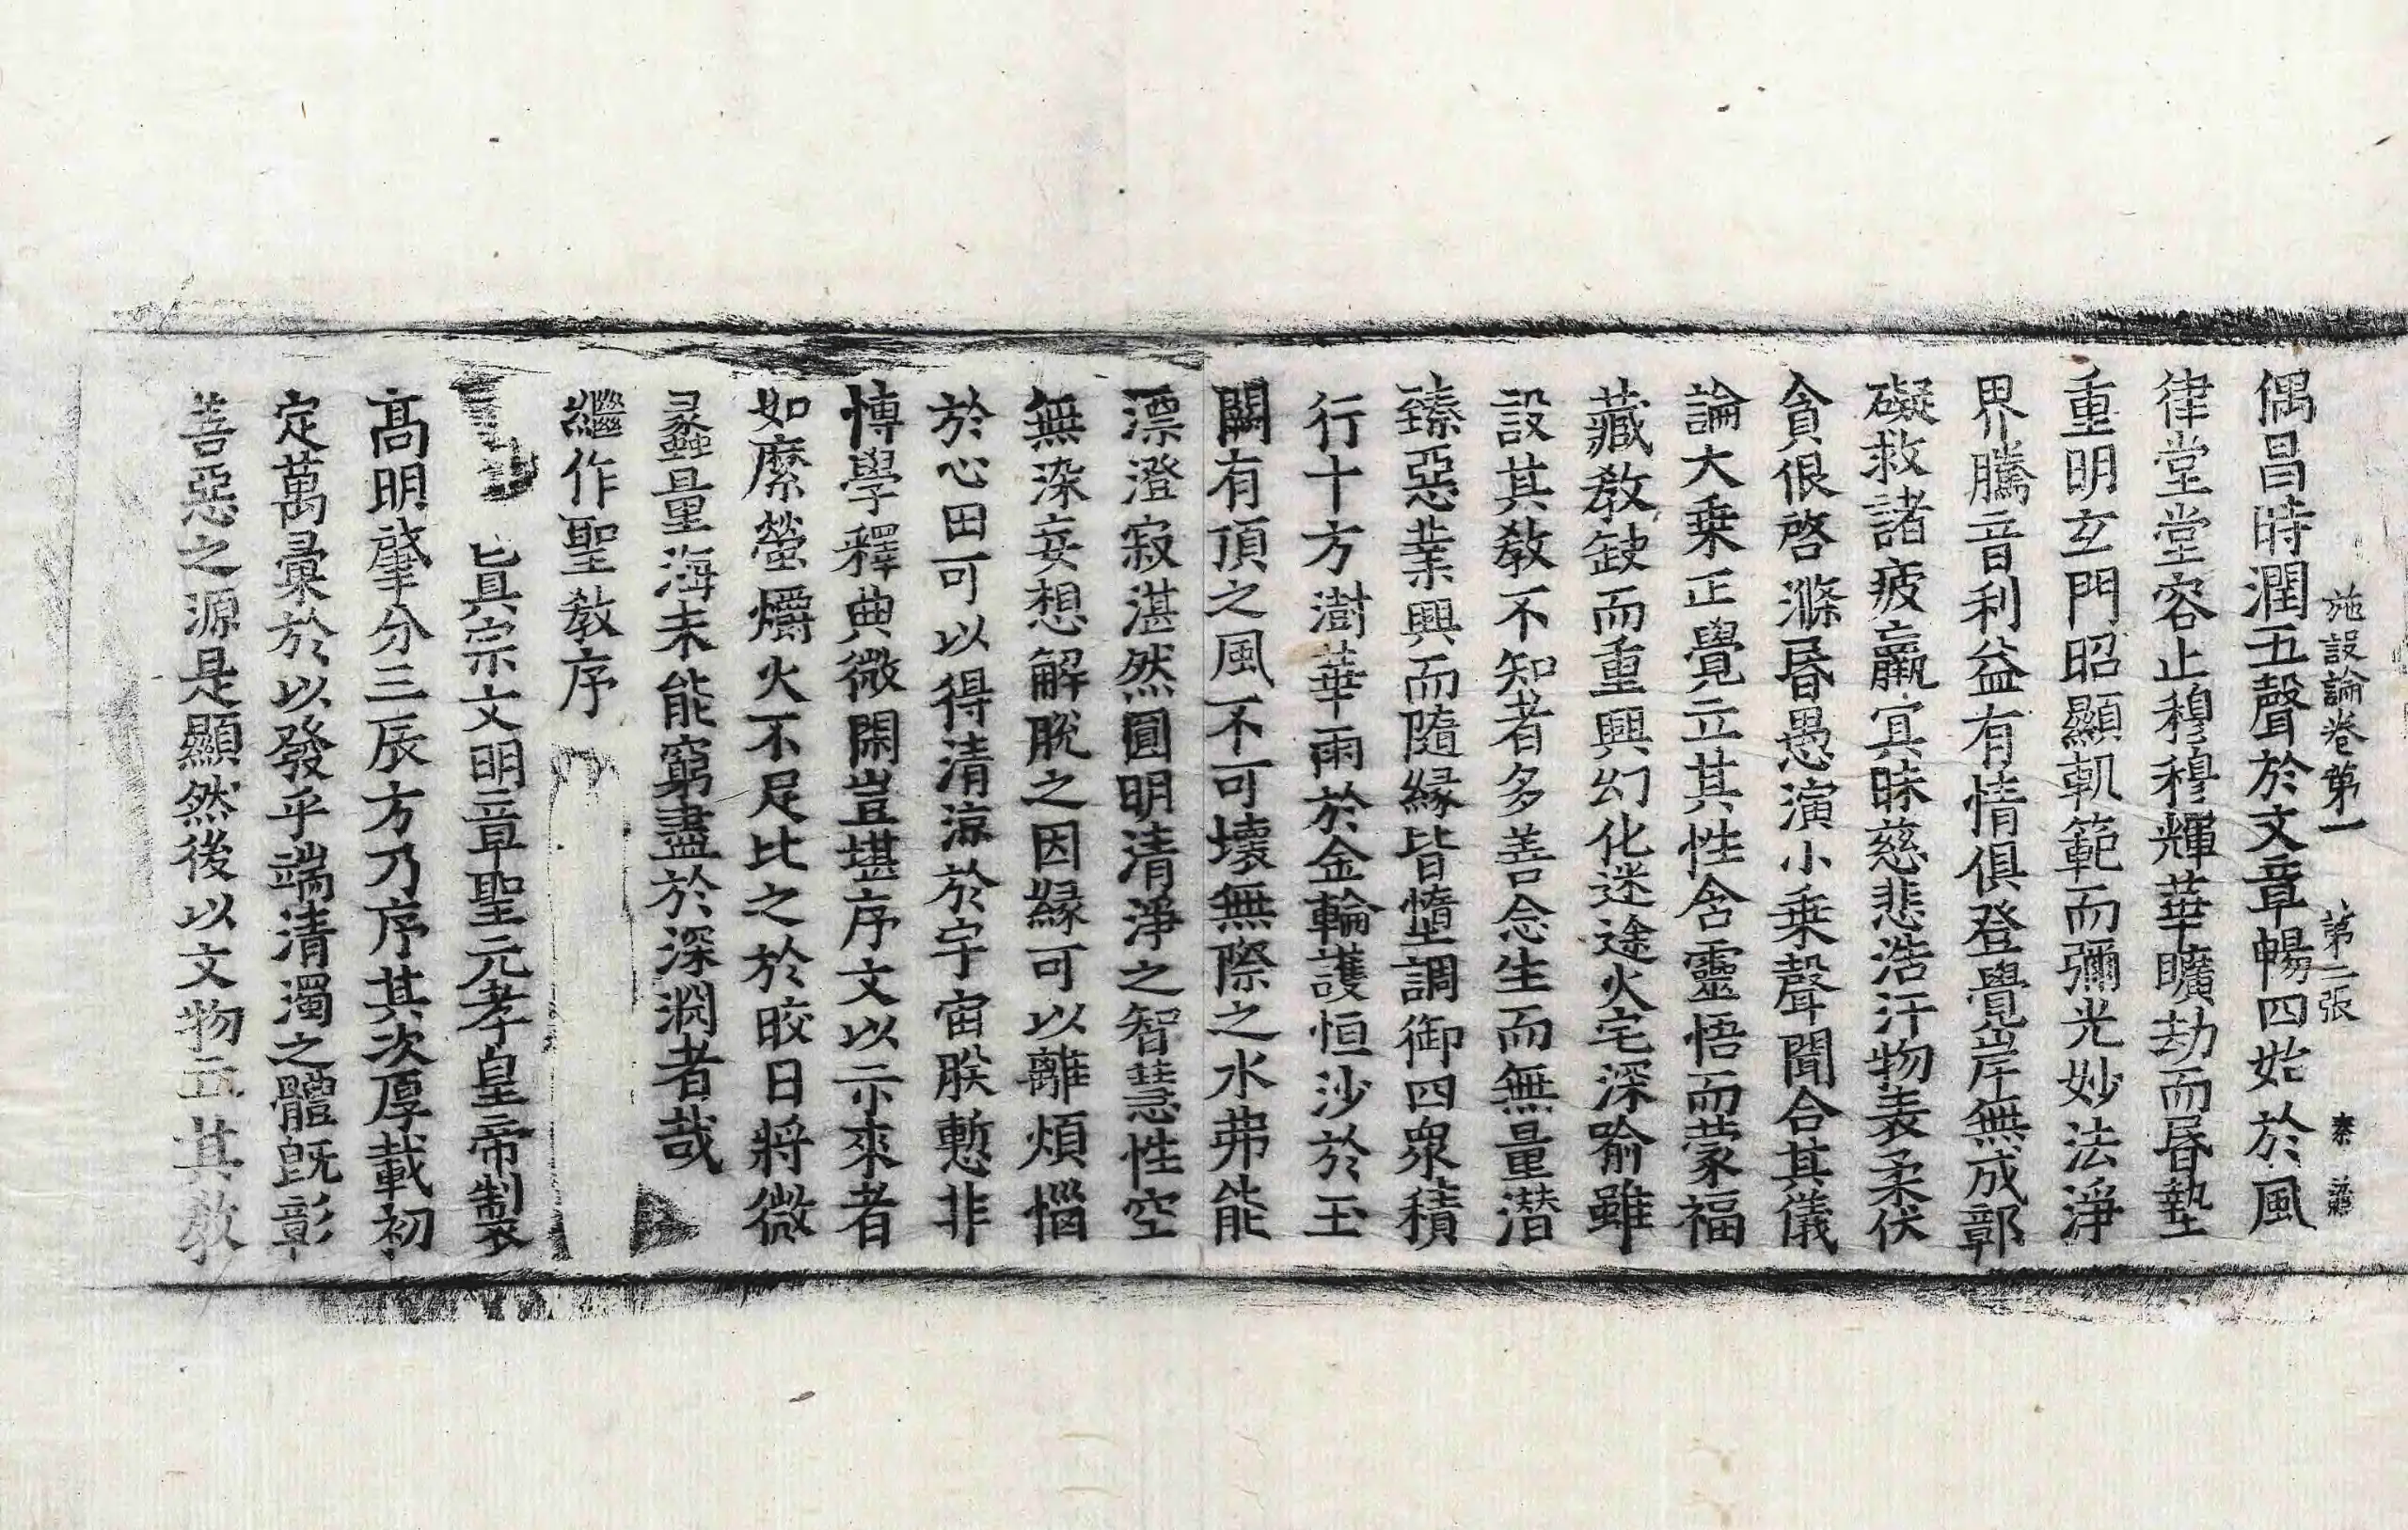 施設論卷第一 第二張
偶昌時潤五聲於文章暢四始於風
律堂堂容止穆穆輝華曠劫而昏墊
重明玄門昭顯軌範而彌光妙法淨
界騰音利益有情俱登覺岸無成鄣
礙救諸疲羸㝠昧慈悲浩汗物表柔伏
貪佷啓滌昏愚演小乗聲聞合其儀
論大乗正覺立其性含靈悟而蒙福
藏教缺而重興幻化迷途火宅深喻雖
設其教不知者多善念生而無量潜
臻惡業興而隨緣皆墮調御四衆積
行十方澍華雨於金輪護恒沙於玉
闕有頂之風不可壞無際之水弗能
漂澄寂湛然圓明清淨之智慧性空
無染妄想解脫之因緣可以離煩惱
於心田可以得清涼於宇宙朕慙非
博學釋典微閑豈堪序文以示來者
如縻螢爝火不足比之於皎日將微
蠡量海未能窮盡於深淵者哉
繼作聖教序
真宗文明章聖元孝皇帝製
髙明肇分三辰方乃序其次厚載初
定萬彙於以發乎端清濁之體旣彰
善惡之源是顯然後以文物立其教